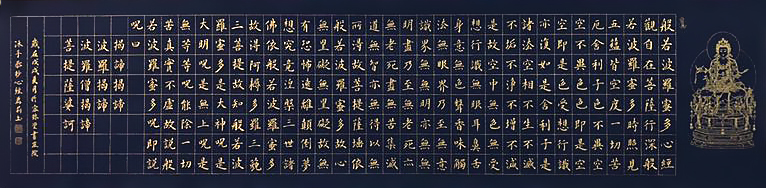 般若波羅蜜多心經
觀自在菩薩行深般
若波羅蜜多時照見
五蘊皆空度一切苦
厄舍利子色不異空
空不異色色即是空
空即是色受想行識
亦復如是舍利子是
諸法空相不生不滅
不垢不淨不增不減
是故空中無色無受
想行識無眼耳鼻舌
身意無色聲香味觸
法無眼界乃至無意
識界無無明亦無無
明盡乃至無老死亦
無老死盡無苦集滅
道無智亦無得以無
所得故菩提薩埵依
般若波羅蜜多故心
無罣礙無罣礙故無
有恐怖遠離顛倒夢
想究竟涅槃三世諸
佛依般若波羅蜜多
故得阿耨多羅三藐
三菩提故知般若波
羅蜜多是大神呪是
大明呪是無上呪是
無等等呪能除一切
苦真實不虛故說般
若波羅蜜多呪即說
呪曰
揭諦揭諦
波羅揭諦
波羅僧揭諦
菩提薩婆訶